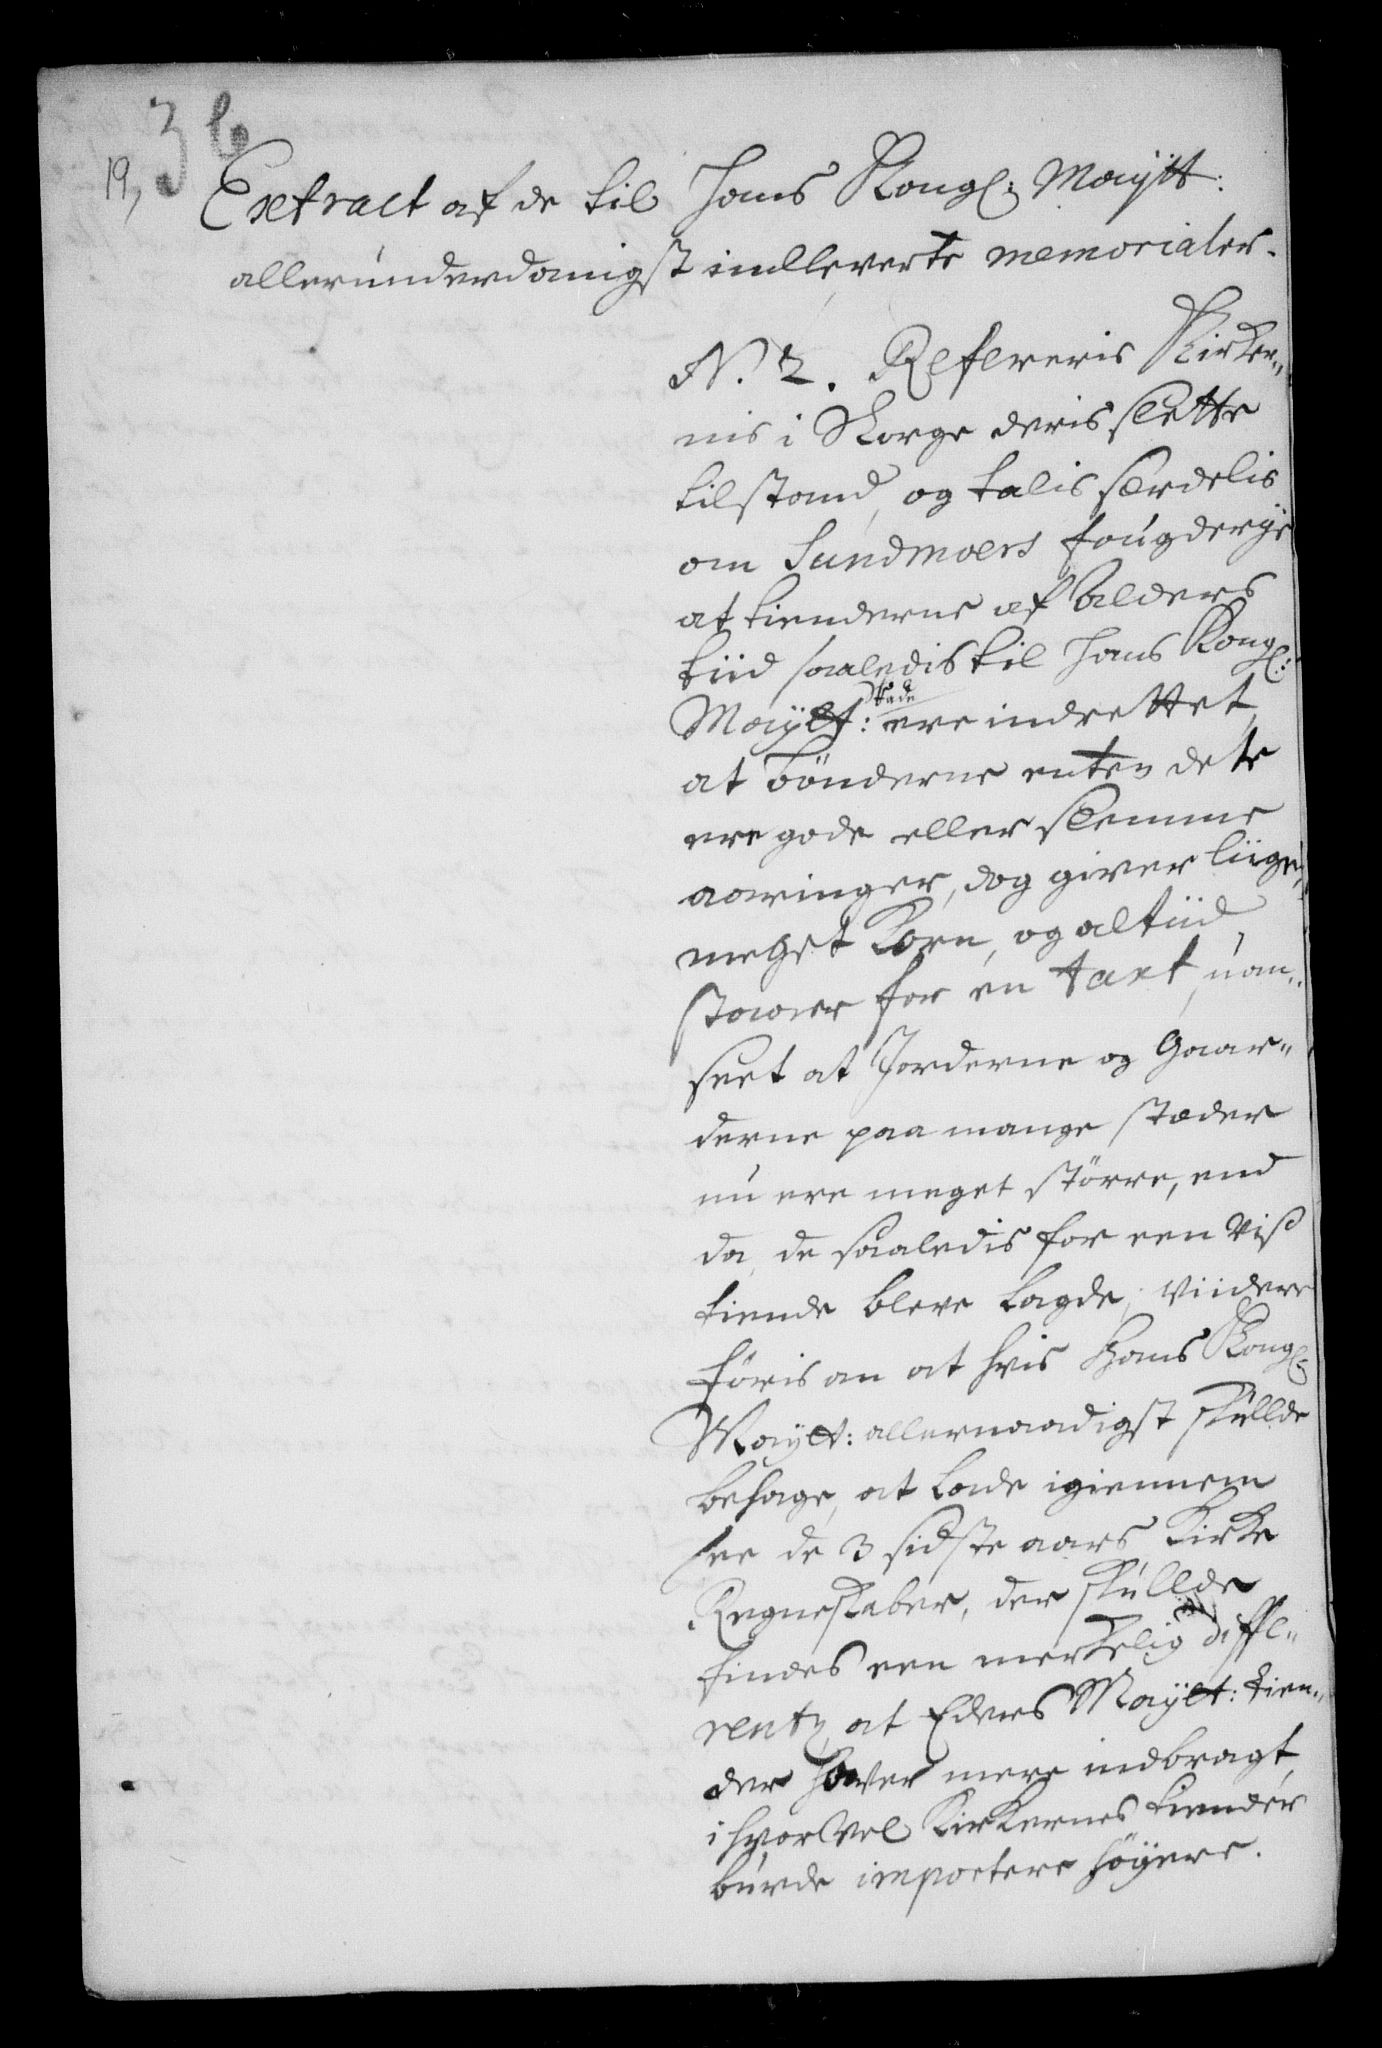 36
19,
Extract af de til Hans Kongl: Maÿtt:
allerunderdanigst indleverte memorialer.
N. 2. Refereris Kirker„
nis i Norge deris slette
tilstand, og talis særdelis
om Sundmoers fougderije
at tienderne af Alders
tiid saaledis til Hans Kongl:
Maÿtt: ere indrettet,
at bönderne enten dete
ere gode eller slemme
aaringer, dog giver liige„
meget Korn, og altiid
staaer for en taxt, uan„
seet at Jorderne og Gaar„
derne paa mange stæder
nu ere meget större, end
da, de saaledis for een viß
tiende bleve lagde; viidere
föris an at hvis Hans Kongl:
Maÿtt: allernaadigst skulde
behage, at lade igiennem
see de 3 sidste aars Kirke
Regneskaber, der skullde
findes een merkelig diffe„
rentz, at Eders Maÿtt: tien„
der haver mere indbragt,
ihvorvel Kirkernes tiender
burde importere höÿere.